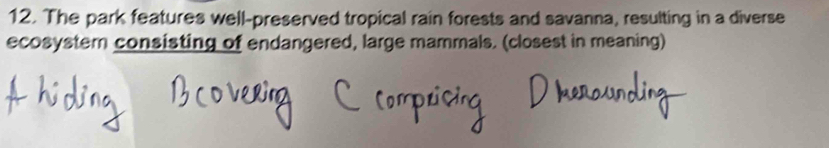 12. The park features well-preserved tropical rain forests and savanna, resulting in a diverse
ecosystem consisting of endangered, large mammals. (closest in meaning)
A hiding B covering C compricing D